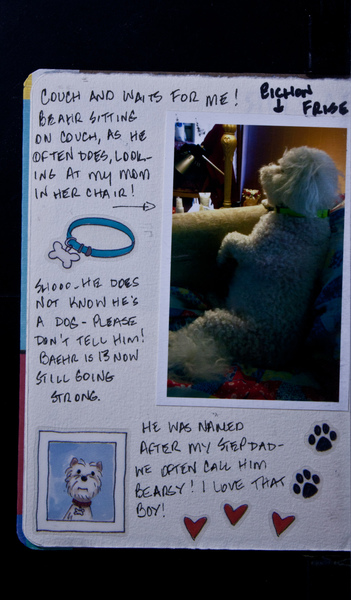 COUCH AND WAITS FOR ME!
BICHON
FRISE
BEAHR SITTING
ON COUCH, AS HE
OFTEN DOES, LOOK-
ING AT MY MOM
IN HER CHAIR!
SHOOO - HE DOES
NOT KNOW HE'S
A DOG - PLEASE
DON'T TELL HIM!
BAEHR IS 13 NOW
STILL GOING
STRONG.
HE WAS NAMED
AFTER MY STEPDAD-
WE OFTEN CALL HIM
BEARSY! I LOVE THAT
BOY!